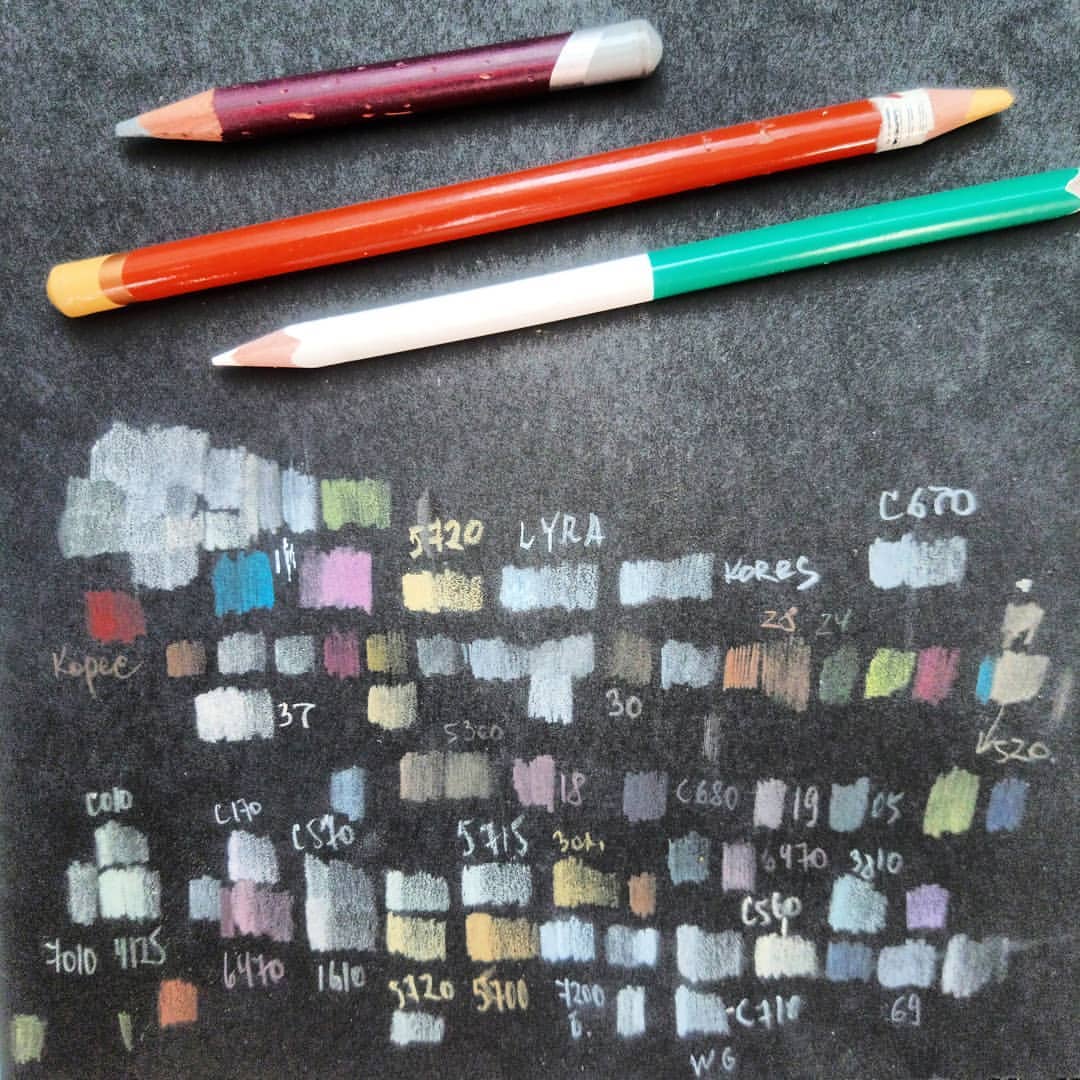 C670
5720 LYRA
KORES
28 24
Корес
37 30
V520.
5300
C010 C170 C570 18 C680 19 05
5715
6470 3810
C560
7010 4125 6470 1610
5720 5700 7200
C710 69
WG